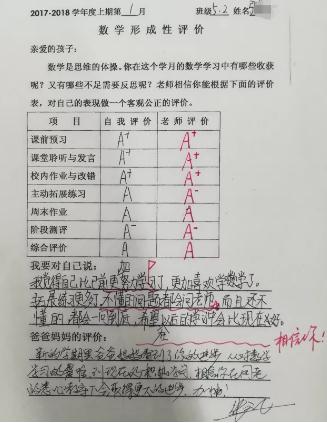 2017-2018 学年度上期第1月 班级5.2 姓名
数学形成性评价
亲爱的孩子:
数学是思维的体操。你在这个学月的数学学习中有哪些收获
呢?又有哪些不足需要反思呢?老师相信你能根据下面的评价
表,对自己的表现做一个客观公正的评价。
项目 自我评价 老师评价
课前预习 A+ A+
课堂聆听与发言 A+ A+
校内作业与改错 A+ A+
主动拓展练习 A A-
周末作业 A A
阶段测评 A- A-
综合评价 A A
我要对自己说:
我觉得自己比以前更努力学习了,更加喜欢学数学了。
拓展练习更多了,不懂的问题都会问老师,而且还不
懂的,都会一问到底,希望以后的练习会比现在好。
爸爸妈妈的评价:
相信你!
新的学期里爸爸妈妈看到了你的进步,从对数学